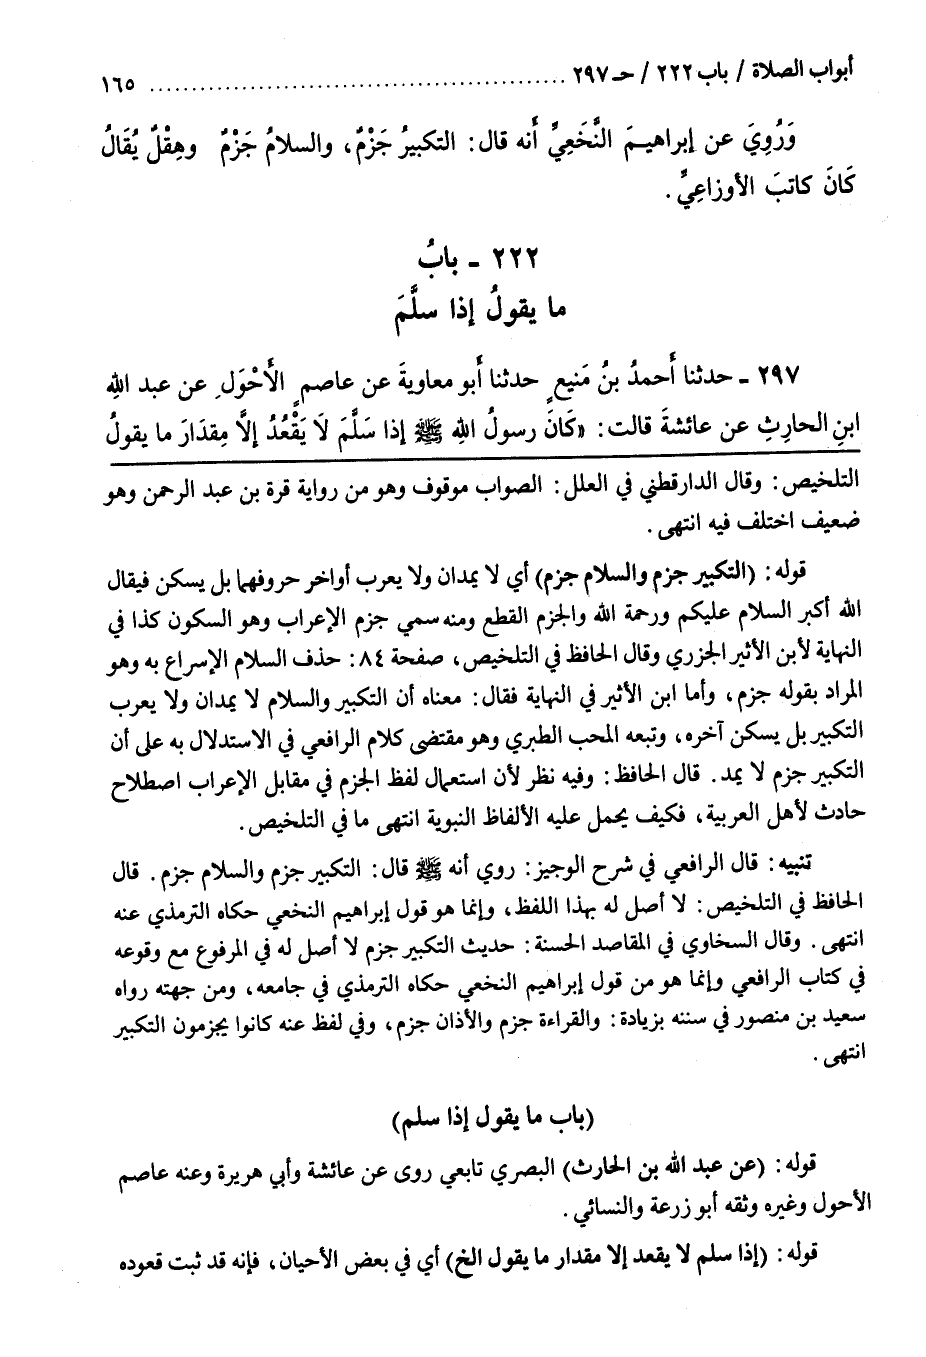 أبواب الصلاة / باب ٢٢٢ / حـ ٢٩٧ ........................................ ١٦٥
وَرُوِيَ عن إبراهيمَ النَّخَعِيِّ أنه قال: التكبيرُ جَزْمٌ، والسلامُ جَزْمٌ وهِقْلٌ يُقَالُ
كَانَ كاتبَ الأوزاعِيِّ.
٢٢٢ ـ بابُ
ما يقولُ إذا سلَّمَ
٢٩٧ ـ حدثنا أَحمدُ بنُ مَنيعٍ حدثنا أبو معاويةَ عن عاصمٍ الأَحْوَلِ عن عبد اللهِ
ابنِ الحارِثِ عن عائشةَ قالت: «كَانَ رسولُ الله ﷺ إذا سَلَّمَ لَا يَقْعُدُ إلَّا مِقدَارَ ما يقولُ
التلخيص: وقال الدارقطني في العلل: الصواب موقوف وهو من رواية قرة بن عبد الرحمن وهو
ضعيف اختلف فيه انتهى.
قوله: (التكبير جزم والسلام جزم) أي لا يمدان ولا يعرب أواخر حروفهما بل يسكن فيقال
الله أكبر السلام عليكم ورحمة الله والجزم القطع ومنه سمي جزم الإعراب وهو السكون كذا في
النهاية لأبن الأثير الجزري وقال الحافظ في التلخيص، صفحة ٨٤: حذف السلام الإسراع به وهو
المراد بقوله جزم، وأما ابن الأثير في النهاية فقال: معناه أن التكبير والسلام لا يمدان ولا يعرب
التكبير بل يسكن آخره، وتبعه المحب الطبري وهو مقتضى كلام الرافعي في الاستدلال به على أن
التكبير جزم لا يمد. قال الحافظ: وفيه نظر لأن استعمال لفظ الجزم في مقابل الإعراب اصطلاح
حادث لأهل العربية، فكيف يحمل عليه الألفاظ النبوية انتهى ما في التلخيص.
تنبيه: قال الرافعي في شرح الوجيز: روي أنه ﷺ قال: التكبير جزم والسلام جزم. قال
الحافظ في التلخيص: لا أصل له بهذا اللفظ، وإنما هو قول إبراهيم النخعي حكاه الترمذي عنه
انتهى. وقال السخاوي في المقاصد الحسنة: حديث التكبير جزم لا أصل له في المرفوع مع وقوعه
في كتاب الرافعي وإنما هو من قول إبراهيم النخعي حكاه الترمذي في جامعه، ومن جهته رواه
سعيد بن منصور في سننه بزيادة: والقراءة جزم والأذان جزم، وفي لفظ عنه كانوا يجزمون التكبير
انتهى.
(باب ما يقول إذا سلم)
قوله: (عن عبد الله بن الحارث) البصري تابعي روى عن عائشة وأبي هريرة وعنه عاصم
الأحول وغيره وثقه أبو زرعة والنسائي.
قوله: (إذا سلم لا يقعد إلا مقدار ما يقول الخ) أي في بعض الأحيان، فإنه قد ثبت قعوده